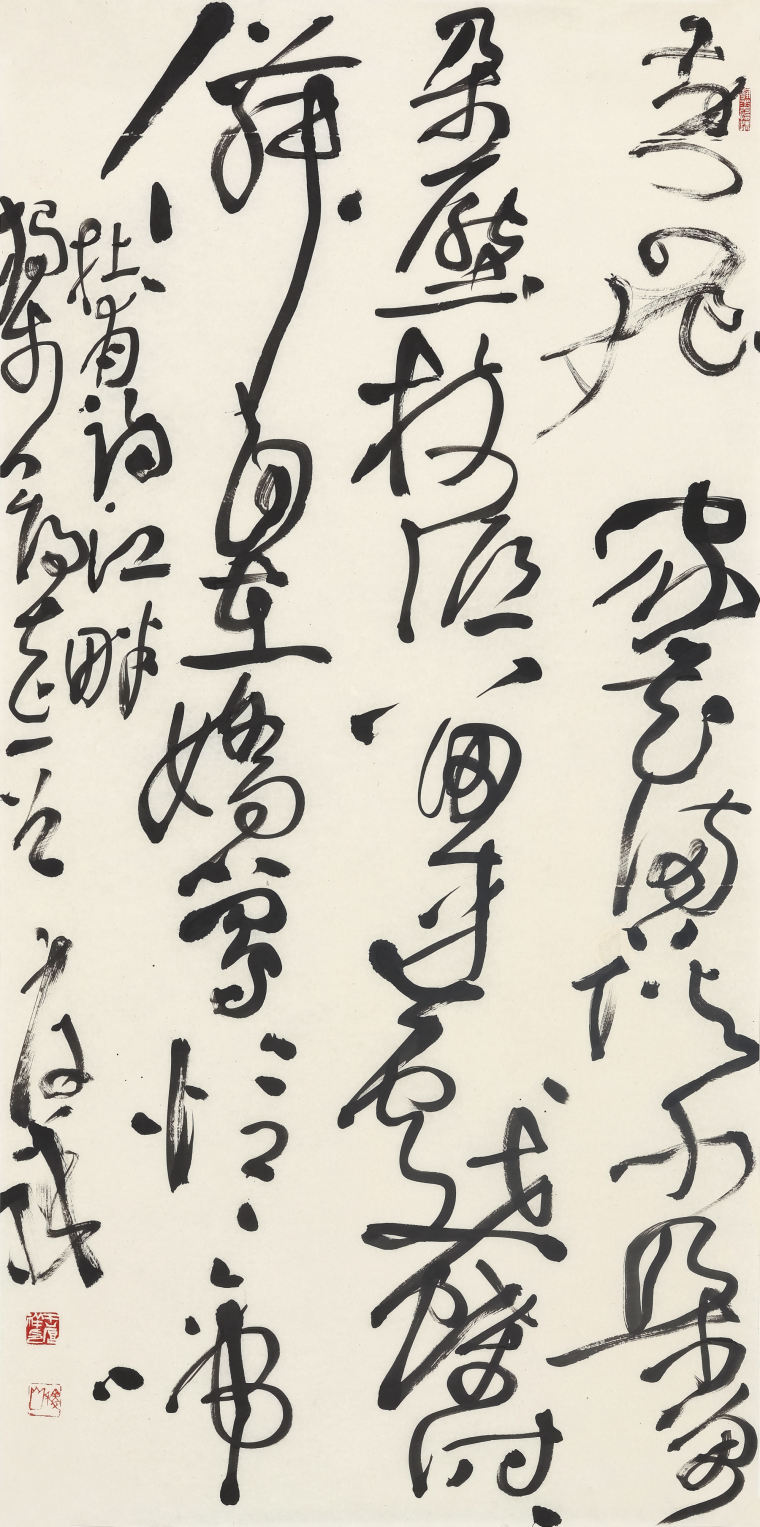 黄四娘家花滿蹊千朵萬
朵壓枝低留連戲蝶時々
舞自在嬌鶯恰々啼
杜甫詩江畔
獨步尋花一首 厚祥